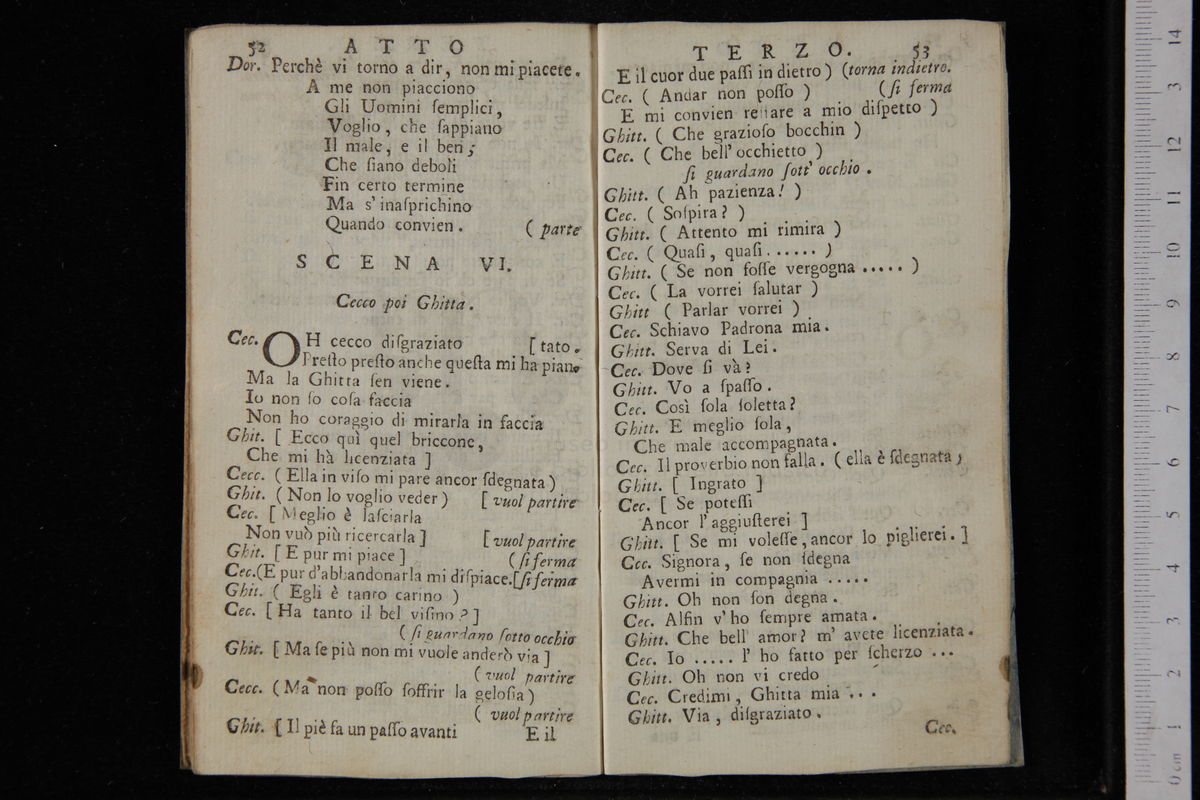 52 ATTO
Dor. Perchè vi torno a dir, non mi piacete.
A me non piacciono
Gli Uomini ſemplici,
Voglio, che ſappiano
Il male, e il ben;
Che ſiano deboli
Fin certo termine
Ma s' inaſprichino
Quando convien. ( parte
SCENA VI.
Cecco poi Ghitta.
Cec. OH cecco diſgraziato [ tato.
Preſto preſto anche queſta mi ha pian
Ma la Ghitta ſen viene.
Io non ſo coſa faccia
Non ho coraggio di mirarla in faccia
Ghit. [ Ecco quì quel briccone,
Che mi hà licenziata ]
Cecc. ( Ella in viſo mi pare ancor ſdegnata )
Ghit. ( Non lo voglio veder ) [ vuol partire
Cec. [ Meglio è laſciarla
Non vuò più ricercarla ] [ vuol partire
Ghit. [ E pur mi piace ] ( ſi ferma
Cec. (E pur d'abbandonarla mi diſpiace. [ſi ferma
Ghit. ( Egli è tanto carino )
Cec. [ Ha tanto il bel viſino ? ]
( ſi guardano ſotto occhio
Ghit. [ Ma ſe più non mi vuole anderò via ]
( vuol partire
Cecc. ( Ma non poſſo ſoffrir la geloſia )
( vuol partire
Ghit. [ Il piè fa un paſſo avanti
E il
TERZO. 53
E il cuor due paſſi in dietro ) (torna indietro.
Cec. ( Andar non poſſo ) ( ſi ferma
E mi convien reſtare a mio diſpetto )
Ghitt. ( Che grazioſo bocchin )
Cec. ( Che bell' occhietto )
ſi guardano ſott' occhio .
Ghitt. ( Ah pazienza! )
Cec. ( Soſpira? )
Ghitt. ( Attento mi rimira )
Cec. ( Quaſi, quaſi. ..... )
Ghitt. ( Se non foſſe vergogna ..... )
Cec. ( La vorrei ſalutar )
Ghitt ( Parlar vorrei )
Cec. Schiavo Padrona mia.
Ghitt. Serva di Lei.
Cec. Dove ſi và?
Ghitt. Vo a ſpaſſo.
Cec. Così ſola ſoletta?
Ghitt. E meglio ſola,
Che male accompagnata.
Cec. Il proverbio non falla. ( ella è ſdegnata )
Ghitt. [ Ingrato ]
Cec. [ Se poteſſi
Ancor l' aggiuſterei ]
Ghitt. [ Se mi voleſſe, ancor lo piglierei. ]
Cec. Signora, ſe non ſdegna
Avermi in compagnia .....
Ghitt. Oh non ſon degna.
Cec. Alfin v' ho ſempre amata.
Ghitt. Che bell' amor? m' avete licenziata.
Cec. Io ..... l' ho fatto per ſcherzo ...
Ghitt. Oh non vi credo
Cec. Credimi, Ghitta mia ...
Ghitt. Via, diſgraziato.
Cec.